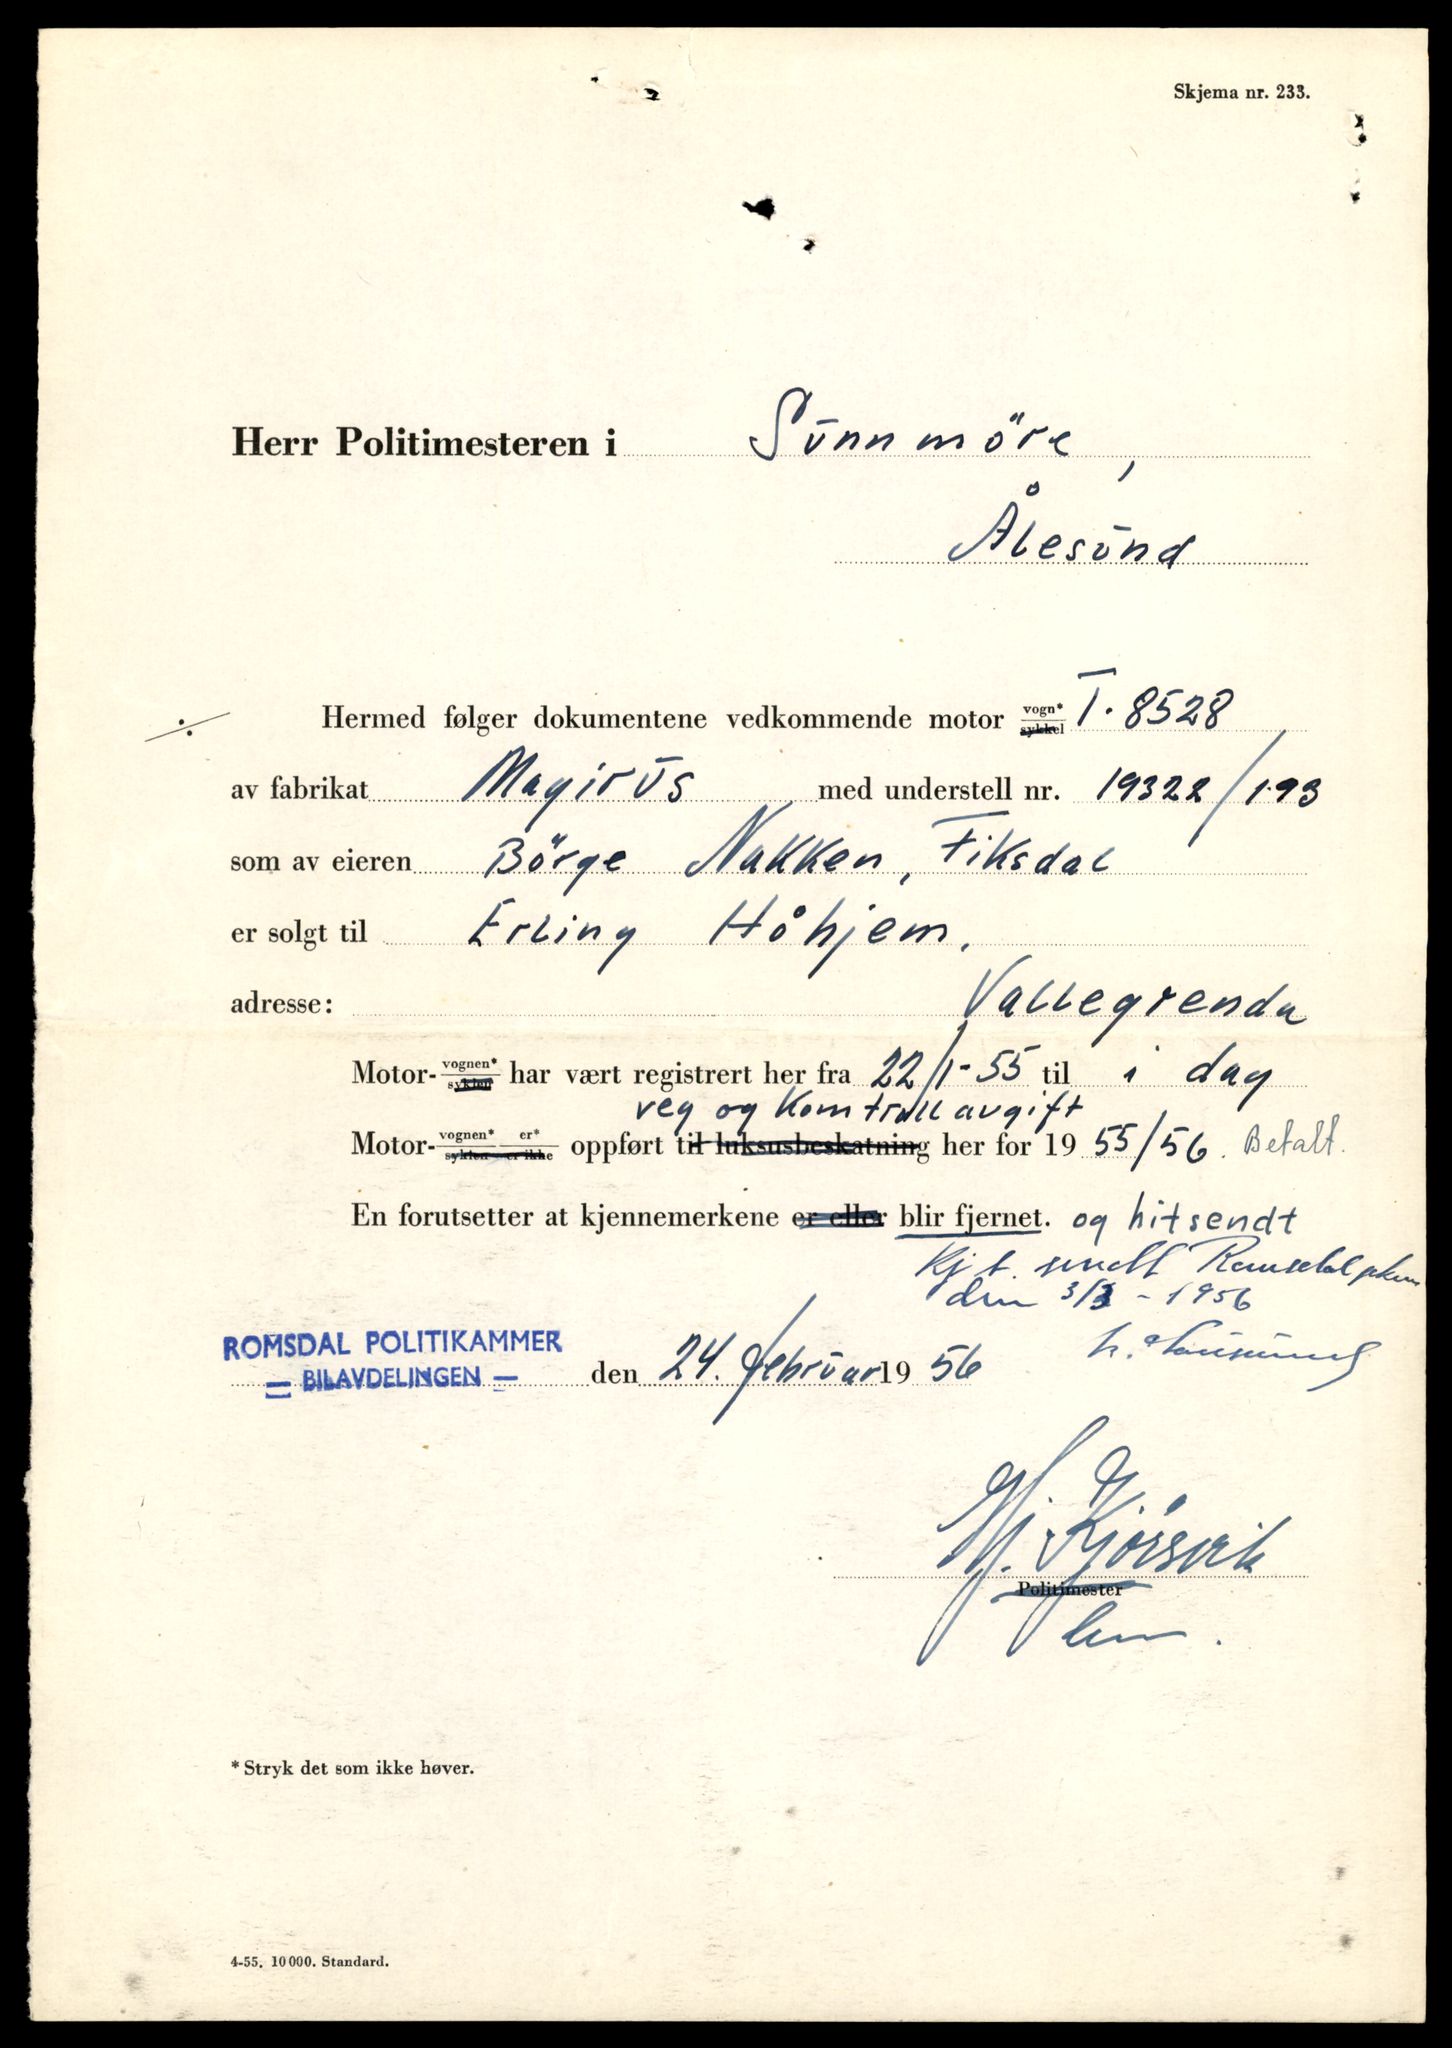 Skjema nr. 233.
Herr Politimesteren i Sunnmöre,
Ålesund
÷ Hermed følger dokumentene vedkommende motor vogn* sykkel T-8528
av fabrikat Magirus med understell nr. 19322/193
som av eieren Börge Nakken, Fiksdal
er solgt til Erling Håhjem,
adresse: Vallegrenda
Motor- vognen* syklen har vært registrert her fra 22/1-55 til i dag
veg og Komtroll avgift
Motor- vognen* er* syklen er ikke oppført til luksusbeskatning her for 19 55/56. Betalt.
En forutsetter at kjennemerkene er eller blir fjernet. og hitsendt
Kj t. sendt Romsdal
den 3/3 - 1956
ROMSDAL POLITIKAMMER
= BILAVDELINGEN — den 24. februar 19 56
Hj. Kjörsvik
Politimester
* Stryk det som ikke høver.
4-55. 10 000. Standard.